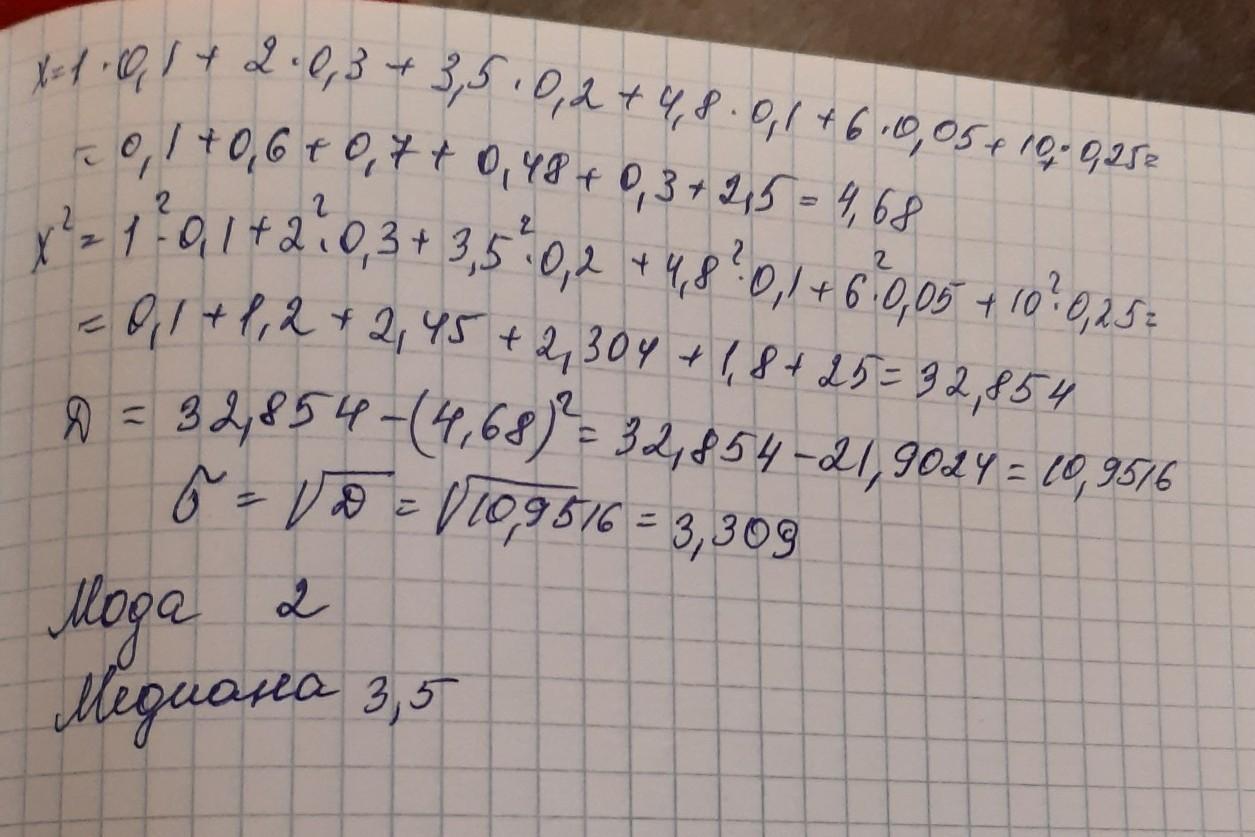 x=1·0,1+2·0,3+3,5·0,2+4,8·0,1+6·0,05+10·0,25=
=0,1+0,6+0,7+0,48+0,3+2,5=4,68
x²=1²·0,1+2²·0,3+3,5²·0,2+4,8²·0,1+6²·0,05+10²·0,25=
=0,1+1,2+2,45+2,304+1,8+25=32,854
D=32,854-(4,68)²=32,854-21,9024=10,9516
σ=√D=√10,9516=3,309
Мода 2
Медиана 3,5